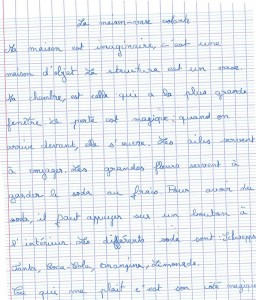 La maison-vase volante
La maison est imaginaire, c'est une
maison d'objet. La structure est un vase.
Sa chambre, est celle qui a la plus grande
fenêtre. La porte est magique : quand on
arrive devant, elle s'ouvre. Les ailes servent
à voyager. Les grandes fleurs servent à
garder le soda au frais. Pour avoir du
soda, il faut appuyer sur un bouton à
l'intérieur. Les différents soda sont : Schweppes
Fanta, Coca-Cola, Orangina, Limonade.
Ce qui me plaît c'est son côté magique